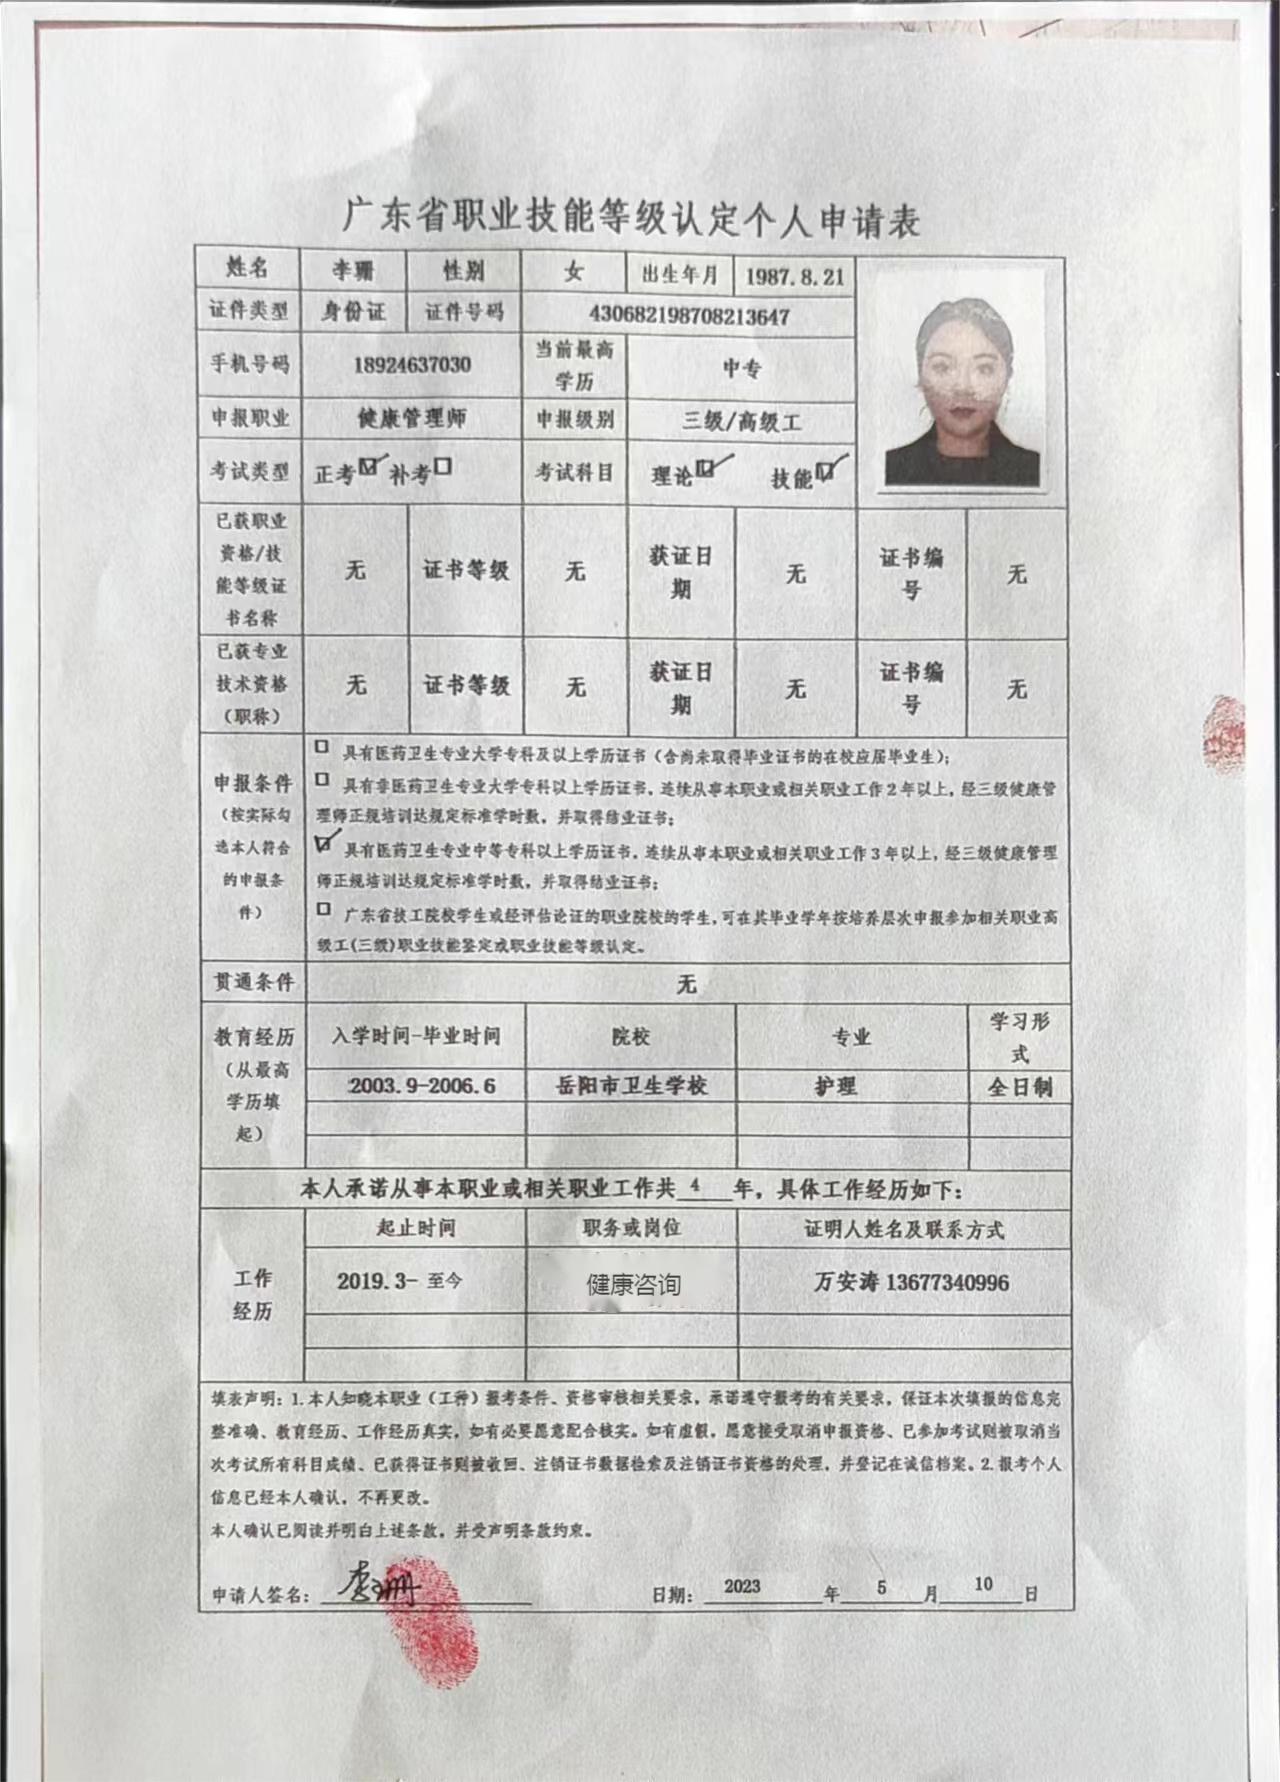 广东省职业技能等级认定个人申请表
姓名 李珊 性别 女 出生年月 1987.8.21
证件类型 身份证 证件号码 430682198708213647
手机号码 18924637030 当前最高学历 中专
申报职业 健康管理师 申报级别 三级/高级工
考试类型 正考☑ 补考☐ 考试科目 理论☑ 技能☑
已获职业资格/技能等级证书名称 无 证书等级 无 获证日期 无 证书编号 无
已获专业技术资格（职称） 无 证书等级 无 获证日期 无 证书编号 无
申报条件（按实际勾选本人符合的申报条件）
☐ 具有医药卫生专业大学专科及以上学历证书（含尚未取得毕业证书的在校应届毕业生）；
☐ 具有非医药卫生专业大学专科以上学历证书，连续从事本职业或相关职业工作2年以上，经三级健康管
理师正规培训达规定标准学时数，并取得结业证书；
☑ 具有医药卫生专业中等专科以上学历证书，连续从事本职业或相关职业工作3年以上，经三级健康管理
师正规培训达规定标准学时数，并取得结业证书；
☐ 广东省技工院校学生或经评估论证的职业院校的学生，可在其毕业学年按培养层次申报参加相关职业高
级工(三级)职业技能鉴定或职业技能等级认定。
贯通条件 无
教育经历（从最高学历填起） 入学时间-毕业时间 院校 专业 学习形式
2003.9-2006.6 岳阳市卫生学校 护理 全日制
本人承诺从事本职业或相关职业工作共 4 年，具体工作经历如下：
工作经历 起止时间 职务或岗位 证明人姓名及联系方式
2019.3-至今 健康咨询 万安涛 13677340996
填表声明：1.本人知晓本职业（工种）报考条件、资格审核相关要求，承诺遵守报考的有关要求，保证本次填报的信息完
整准确、教育经历、工作经历真实，如有必要愿意配合核实。如有虚假，愿意接受取消申报资格、已参加考试则被取消当
次考试所有科目成绩、已获得证书则被收回、注销证书数据检索及注销证书资格的处理，并登记在诚信档案。2.报考个人
信息已经本人确认，不再更改。
本人确认已阅读并明白上述条款，并受声明条款约束。
申请人签名：李珊 日期：2023年5月10日